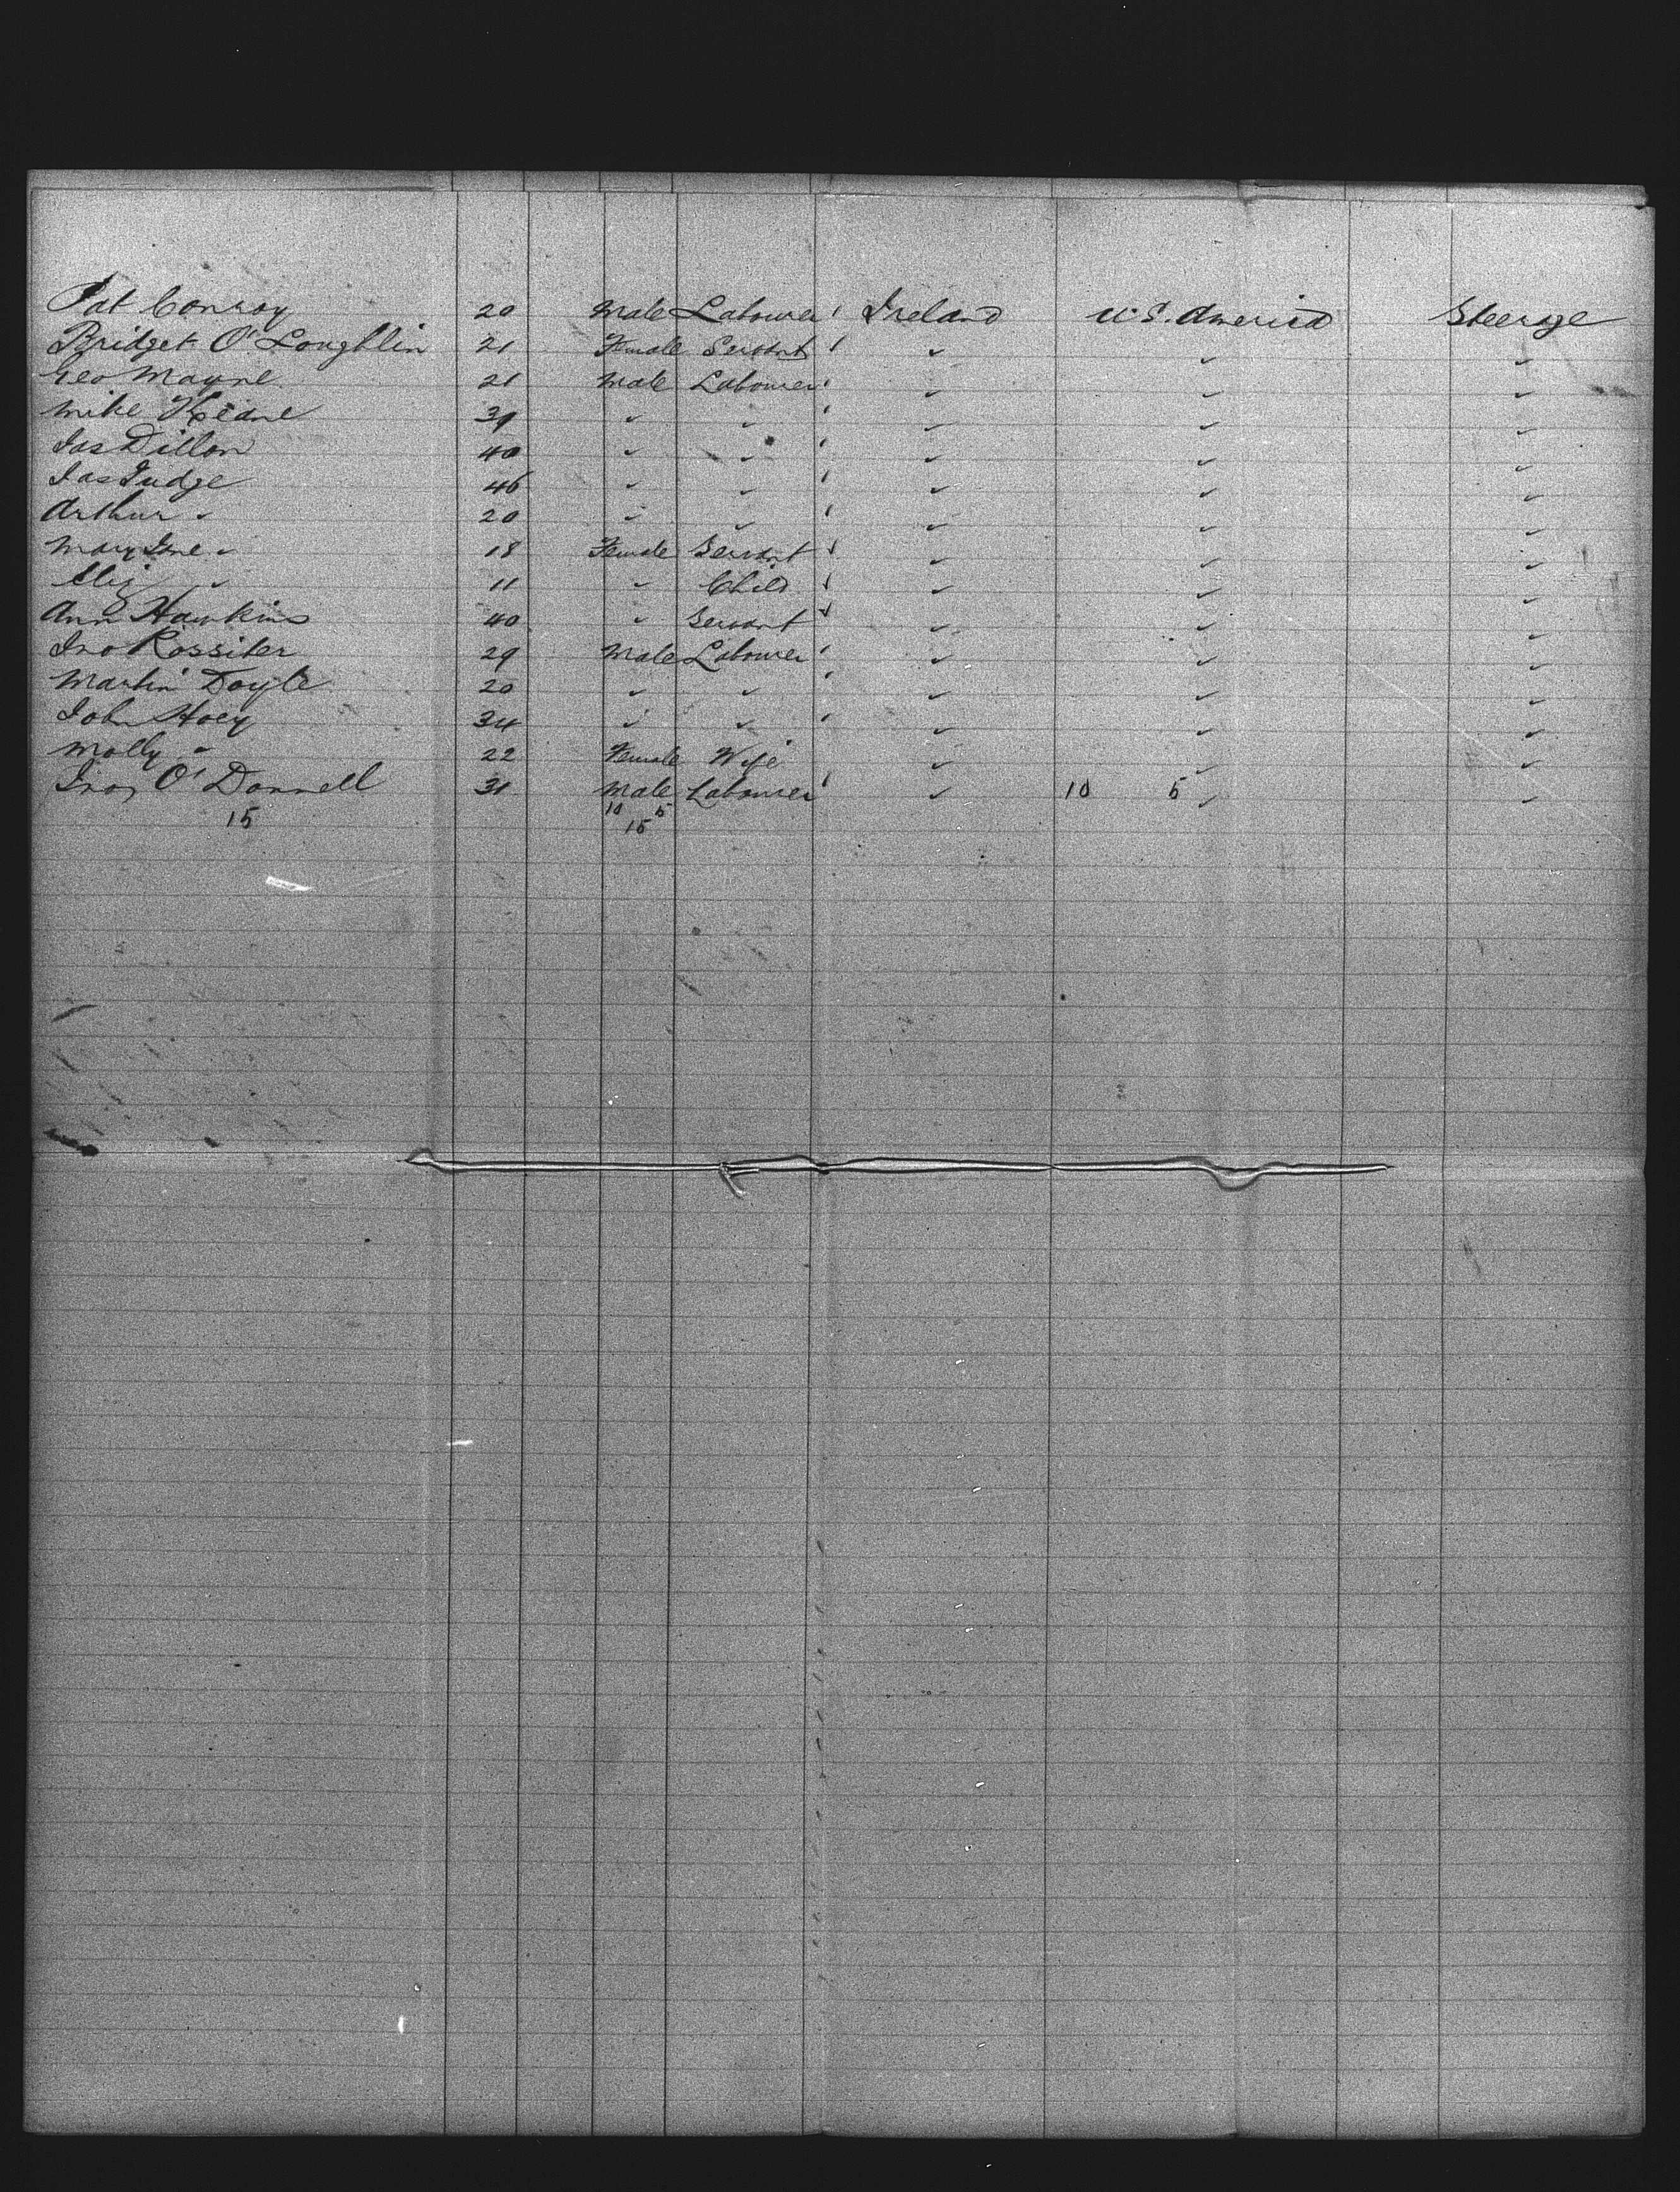 Pat Conroy 20 Male Labourer ' Ireland U.S. America Steerage
Bridget O'Loughlin 21 Female Servant ' ✓ ✓ ✓
Geo Mayne 21 Male Labourer ' ✓ ✓ ✓
Mike Keane 39 ✓ ✓ ' ✓ ✓ ✓
Jas Dillon 40 ✓ ✓ ' ✓ ✓ ✓
Jas Judge 46 ✓ ✓ ' ✓ ✓ ✓
Arthur ✓ 20 ✓ ✓ ' ✓ ✓ ✓
Mary Jane ✓ 18 Female Servant ✓ ✓ ✓ ✓
Eliz ✓ 11 ✓ Child ✓ ✓ ✓ ✓
Ann Hawkins 40 ✓ Servant ✓ ✓ ✓ ✓
Jno Rossiter 29 Male Labourer ' ✓ ✓ ✓
Martin Doyle 20 ✓ ✓ ' ✓ ✓ ✓
John Hoey 34 ✓ ✓ ' ✓ ✓ ✓
Molly ✓ 22 Female Wife ✓ ✓ ✓
Jno O'Donnell 31 Male Labourer ' ✓ 10 5 ✓ ✓
15 10 5
15